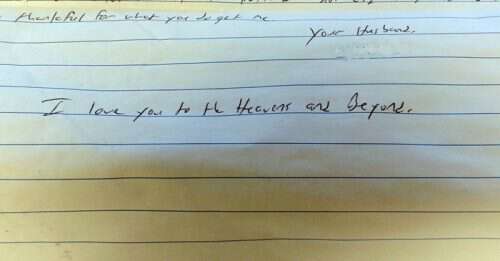 thankful for what you do get me
Your Husband.
I love you to the Heavens and Beyond.